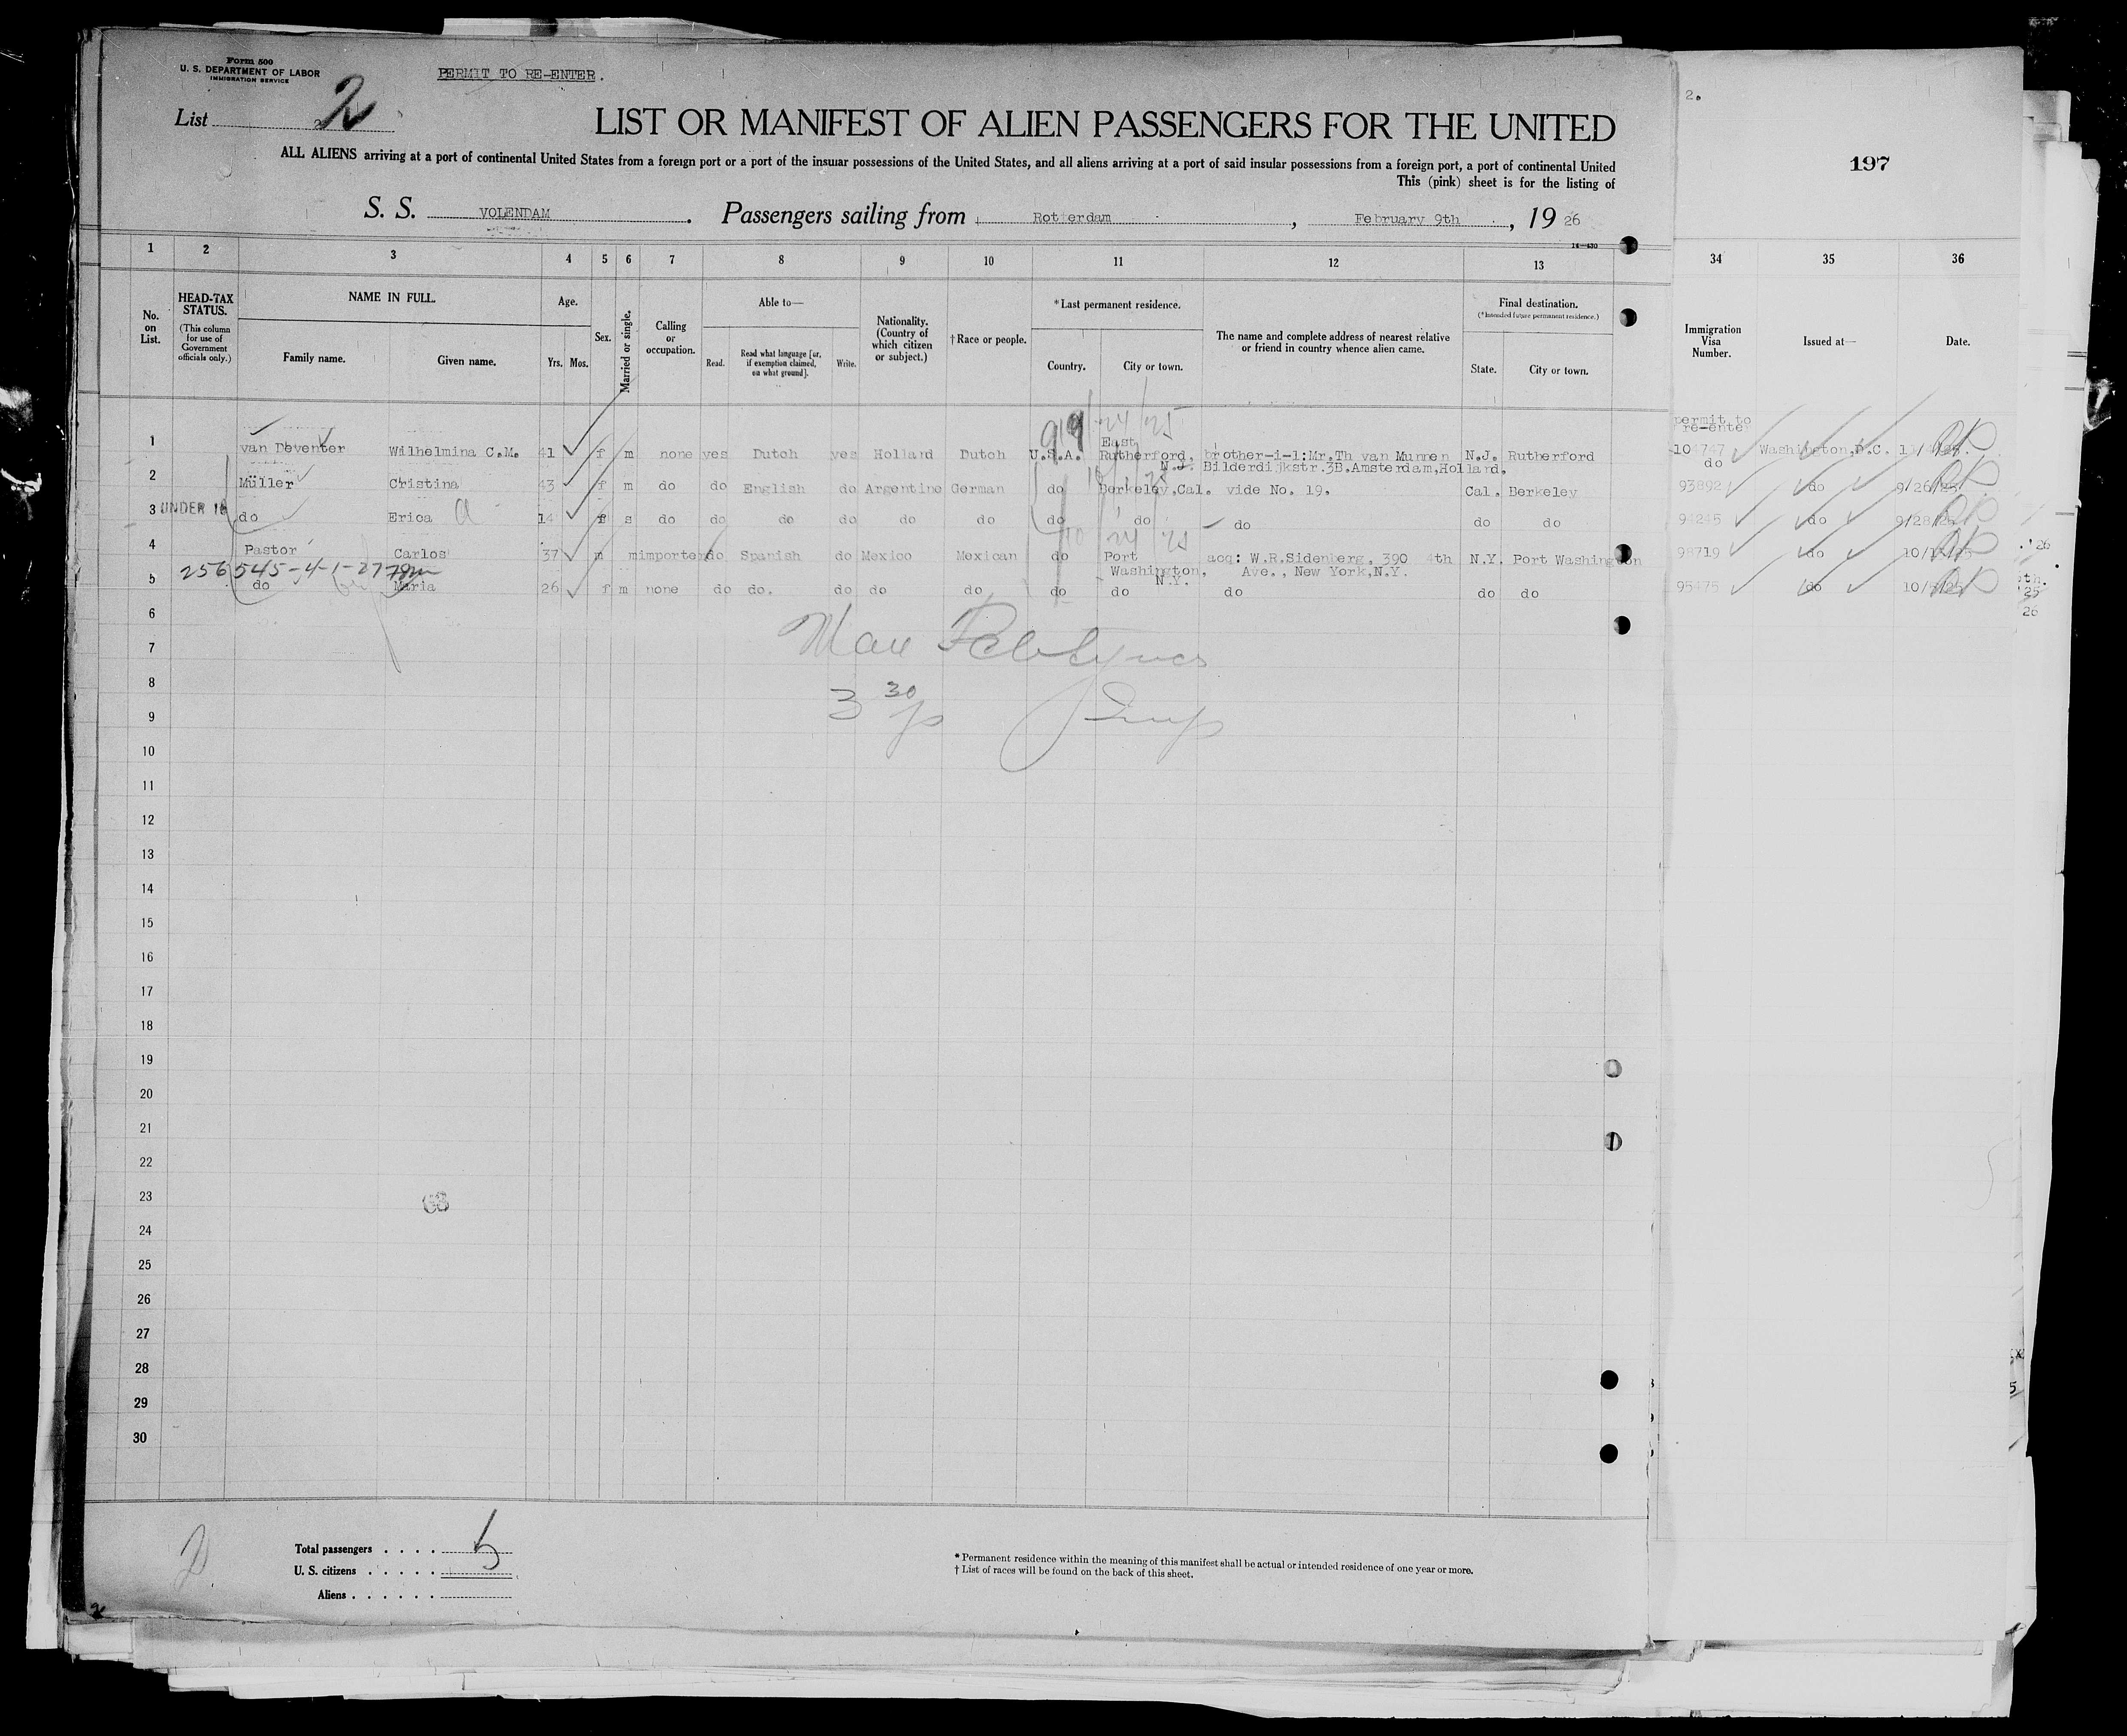 Form 500
U. S. DEPARTMENT OF LABOR
IMMIGRATION SERVICE
PERMIT TO RE-ENTER.
List 2
2
LIST OR MANIFEST OF ALIEN PASSENGERS FOR THE UNITED
ALL ALIENS arriving at a port of continental United States from a foreign port or a port of the insular possessions of the United States, and all aliens arriving at a port of said insular possessions from a foreign port, a port of continental United
This (pink) sheet is for the listing of
S. S. VOLENDAM. Passengers sailing from Rotterdam, February 9th, 19 26
2.
197
14—430
1 2 3 4 5 6 7 8 9 10 11 12 13 34 35 36
No. on List.
HEAD-TAX STATUS.
(This column for use of Government officials only.)
NAME IN FULL.
Family name. Given name.
Age.
Yrs. Mos.
Sex.
Married or single.
Calling or occupation.
Able to—
Read. Read what language [or, if exemption claimed, on what ground]. Write.
Nationality. (Country of which citizen or subject.)
†Race or people.
*Last permanent residence.
Country. City or town.
The name and complete address of nearest relative or friend in country whence alien came.
Final destination.
(*Intended future permanent residence.)
State. City or town.
Immigration Visa Number.
Issued at—
Date.
permit to
re-enter
9/24/25
East
1 van Deventer Wilhelmina C.M. 41 f m none yes Dutch yes Holland Dutch U.S.A. Rutherford, brother-i-l:Mr.Th van Munnen N.J. Rutherford 104747 Washington,D.C.
N.J. Bilderdijkstr.3B.Amsterdam,Holland. do
2 Müller Cristina 43 f m do do English do Argentine German do Berkeley,Cal. vide No. 19. Cal. Berkeley 93892 do 9/26/25
3 UNDER 16 do Erica a 14 f s do do do do do do do do do do do 94245 do 9/28/25
10/24/25
4 Pastor Carlos 37 m m importer do Spanish do Mexico Mexican do Port acq: W.R.Sidenberg. 390 4th N.Y. Port Washington 98719 do
Washington, Ave., New York,N.Y.
256545-4-1-27
N.Y.
5 do Maria 26 f m none do do. do do do do do do do do 95475 do
6
7
8
3 30 p
9
10
11
12
13
14
15
16
17
18
19
20
21
22
23
63
24
25
26
27
28
29
30
Total passengers 5
U. S. citizens
Aliens
* Permanent residence within the meaning of this manifest shall be actual or intended residence of one year or more.
† List of races will be found on the back of this sheet.